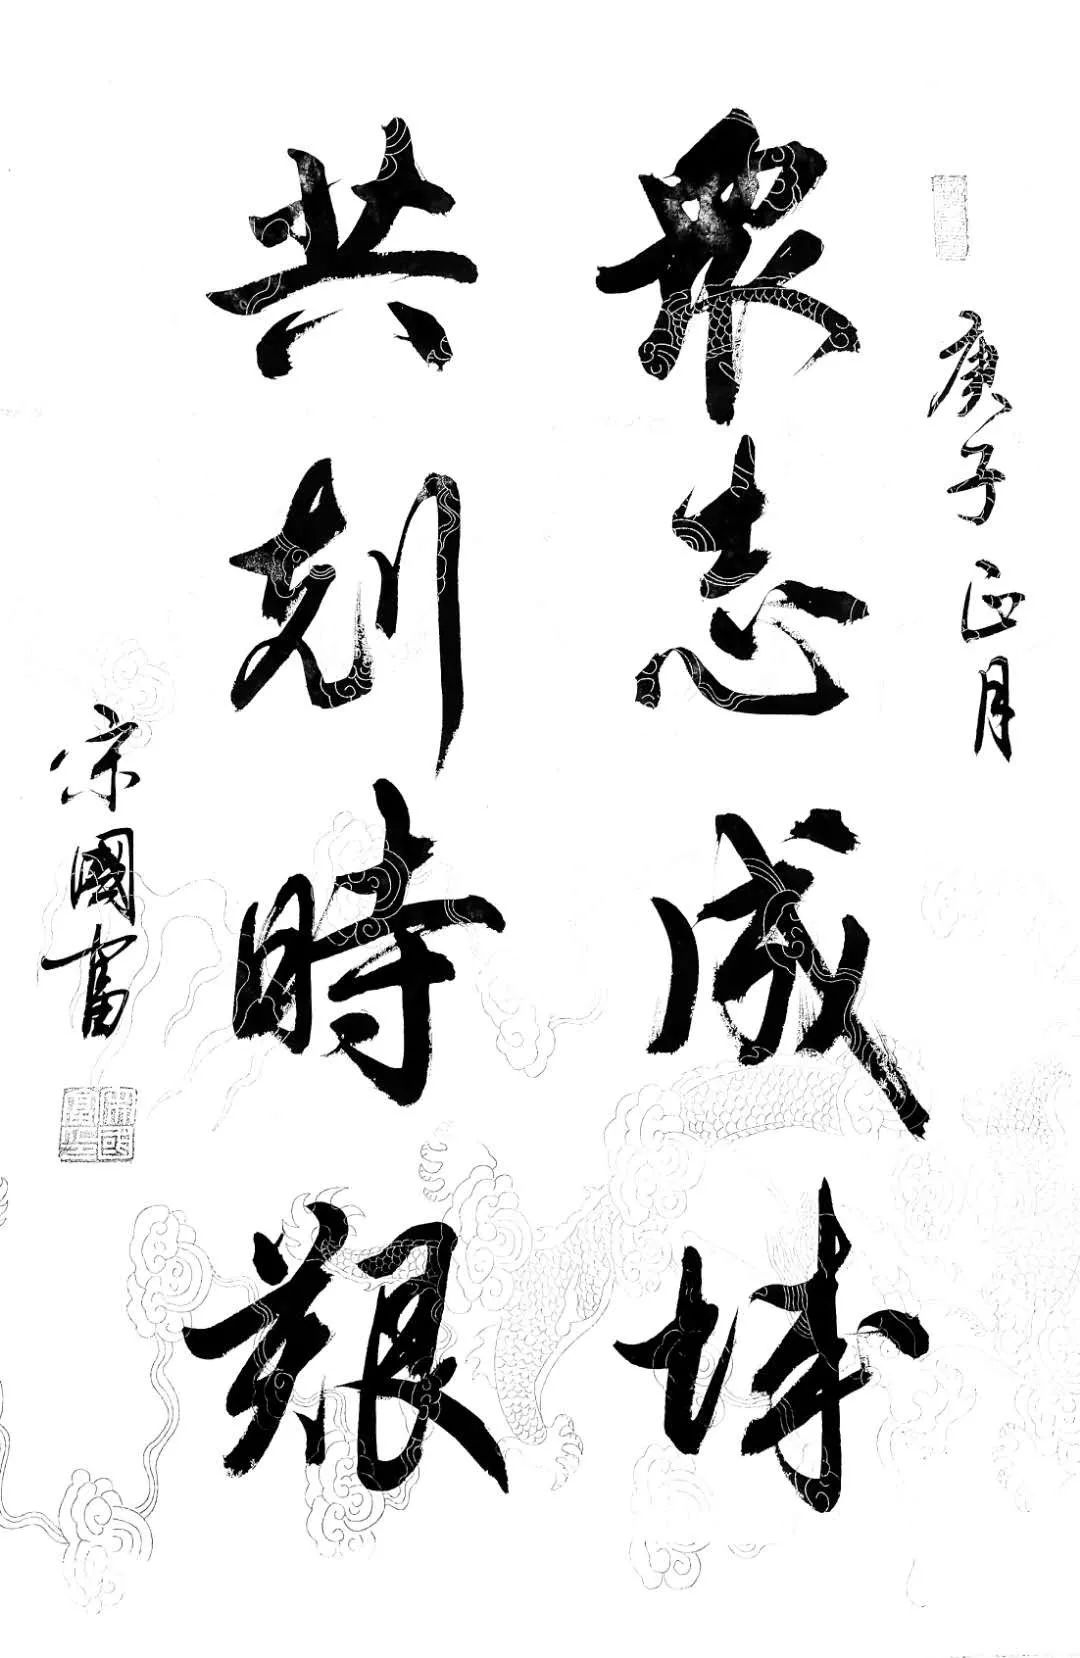 庚子正月
眾志成城
共剋時艱
宋國富